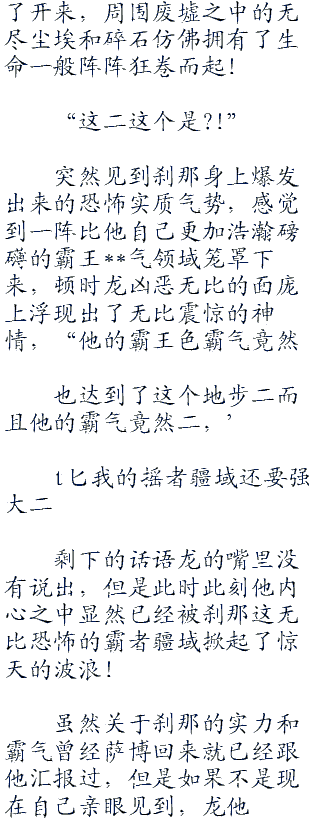 了开来，周围废墟之中的无
尽尘埃和碎石仿佛拥有了生
命一般阵阵狂卷而起！
“这二这个是?!”
突然见到刹那身上爆发
出来的恐怖实质气势，感觉
到一阵比他自己更加浩瀚磅
礴的霸王**气领域笼罩下
来，顿时龙凶恶无比的面庞
上浮现出了无比震惊的神
情，“他的霸王色霸气竟然
也达到了这个地步二而
且他的霸气竟然二，’
t匕我的摇者疆域还要强
大二
剩下的话语龙的嘴里没
有说出，但是此时此刻他内
心之中显然已经被刹那这无
比恐怖的霸者疆域掀起了惊
天的波浪！
虽然关于刹那的实力和
霸气曾经萨博回来就已经跟
他汇报过，但是如果不是现
在自己亲眼见到，龙他